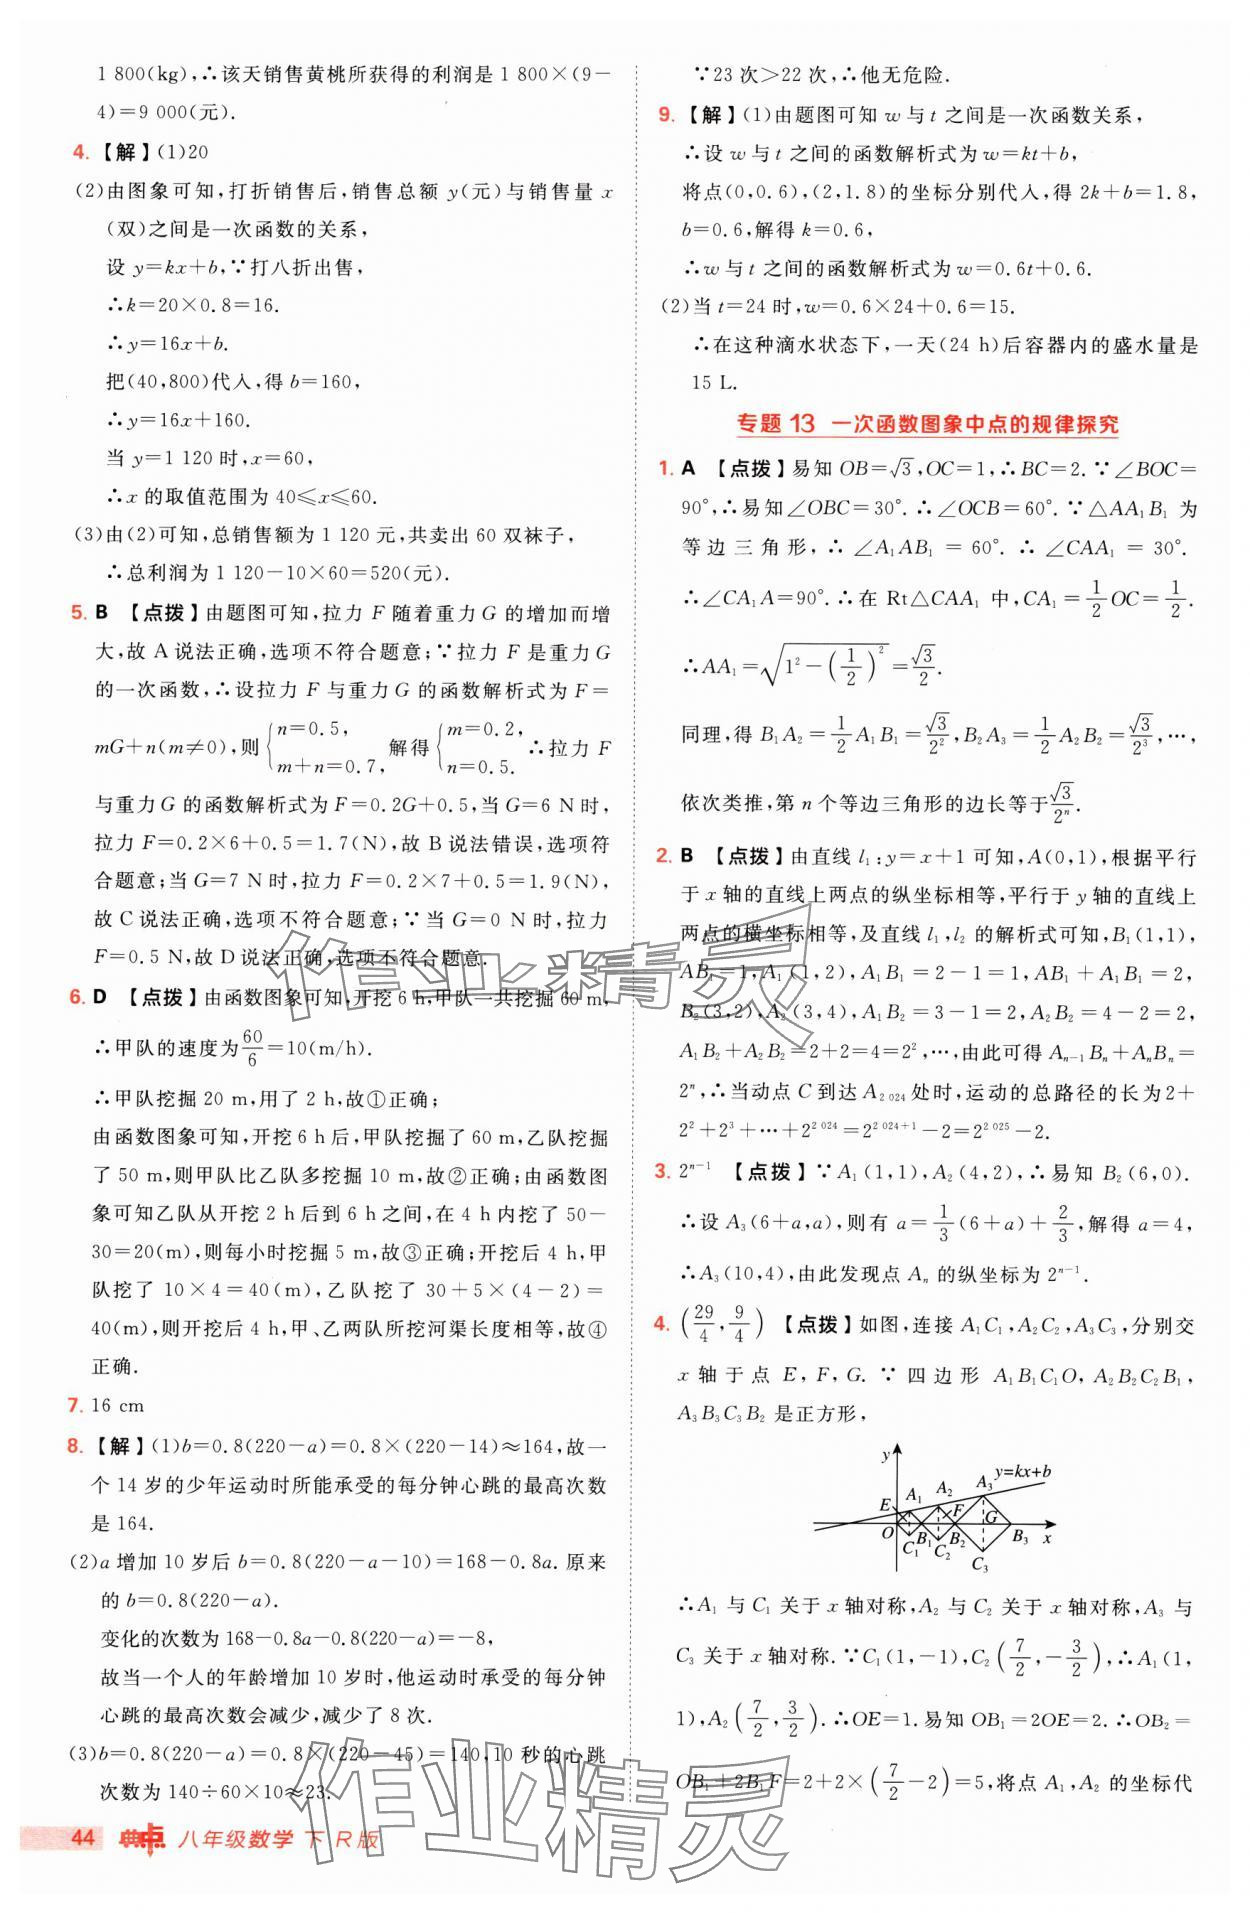 1 800(kg),∴该天销售黄桃所获得的利润是 1 800×(9-
4)=9 000(元).
4. 【解】(1)20
(2)由图象可知,打折销售后,销售总额 y(元)与销售量 x
(双)之间是一次函数的关系,
设 y=kx+b,∵打八折出售,
∴k=20×0.8=16.
∴y=16x+b.
把(40,800)代入,得 b=160,
∴y=16x+160.
当 y=1 120 时,x=60,
∴x 的取值范围为 40≤x≤60.
(3)由(2)可知,总销售额为 1 120 元,共卖出 60 双袜子,
∴总利润为 1 120-10×60=520(元).
5. B 【点拨】由题图可知,拉力 F 随着重力 G 的增加而增
大,故 A 说法正确,选项不符合题意;∵拉力 F 是重力 G
的一次函数,∴设拉力 F 与重力 G 的函数解析式为 F=
mG+n(m≠0),则{n=0.5, m+n=0.7, 解得{m=0.2, n=0.5. ∴拉力 F
与重力 G 的函数解析式为 F=0.2G+0.5,当 G=6 N 时,
拉力 F=0.2×6+0.5=1.7(N),故 B 说法错误,选项符
合题意;当 G=7 N 时,拉力 F=0.2×7+0.5=1.9(N),
故 C 说法正确,选项不符合题意;∵当 G=0 N 时,拉力
F=0.5 N,故 D 说法正确,选项不符合题意.
6. D 【点拨】由函数图象可知,开挖 6 h,甲队一共挖掘 60 m,
∴甲队的速度为60/6=10(m/h).
∴甲队挖掘 20 m,用了 2 h,故①正确;
由函数图象可知,开挖 6 h 后,甲队挖掘了 60 m,乙队挖掘
了 50 m,则甲队比乙队多挖掘 10 m,故②正确;由函数图
象可知乙队从开挖 2 h 后到 6 h 之间,在 4 h 内挖了 50-
30=20(m),则每小时挖掘 5 m,故③正确;开挖后 4 h,甲
队挖了 10×4=40(m),乙队挖了 30+5×(4-2)=
40(m),则开挖后 4 h,甲、乙两队所挖河渠长度相等,故④
正确.
7. 16 cm
8. 【解】(1)b=0.8(220-a)=0.8×(220-14)≈164,故一
个 14 岁的少年运动时所能承受的每分钟心跳的最高次数
是 164.
(2)a 增加 10 岁后 b=0.8(220-a-10)=168-0.8a.原来
的 b=0.8(220-a).
变化的次数为 168-0.8a-0.8(220-a)=-8,
故当一个人的年龄增加 10 岁时,他运动时承受的每分钟
心跳的最高次数会减少,减少了 8 次.
(3)b=0.8(220-a)=0.8×(220-45)=140,10 秒的心跳
次数为 140÷60×10≈23.
∵23 次>22 次,∴他无危险.
9. 【解】(1)由题图可知 w 与 t 之间是一次函数关系,
∴设 w 与 t 之间的函数解析式为 w=kt+b,
将点(0,0.6),(2,1.8)的坐标分别代入,得 2k+b=1.8,
b=0.6,解得 k=0.6,
∴w 与 t 之间的函数解析式为 w=0.6t+0.6.
(2)当 t=24 时,w=0.6×24+0.6=15.
∴在这种滴水状态下,一天(24 h)后容器内的盛水量是
15 L.
专题 13 一次函数图象中点的规律探究
1. A 【点拨】易知 OB=√3,OC=1,∴BC=2.∵∠BOC=
90°,∴易知∠OBC=30°.∴∠OCB=60°.∵△AA₁B₁ 为
等边三角形,∴∠A₁AB₁=60°.∴∠CAA₁=30°.
∴∠CA₁A=90°.∴在 Rt△CAA₁ 中,CA₁=1/2 OC=1/2.
∴AA₁=√(1²-(1/2)²)=√3/2.
同理,得 B₁A₂=1/2 A₁B₁=√3/2²,B₂A₃=1/2 A₂B₂=√3/2³,…,
依次类推,第 n 个等边三角形的边长等于√3/2ⁿ.
2. B 【点拨】由直线 l₁:y=x+1 可知,A(0,1),根据平行
于 x 轴的直线上两点的纵坐标相等,平行于 y 轴的直线上
两点的横坐标相等,及直线 l₁,l₂ 的解析式可知,B₁(1,1),
AB₁=1,A₁(1,2),A₁B₁=2-1=1,AB₁+A₁B₁=2,
B₂(3,2),A₂(3,4),A₁B₂=3-1=2,A₂B₂=4-2=2,
A₁B₂+A₂B₂=2+2=4=2²,…,由此可得 Aₙ₋₁Bₙ+AₙBₙ=
2ⁿ,∴当动点 C 到达 A₂ ₀₂₄ 处时,运动的总路径的长为 2+
2²+2³+…+2² ⁰²⁴=2² ⁰²⁴⁺¹-2=2² ⁰²⁵-2.
3. 2ⁿ⁻¹ 【点拨】∵A₁(1,1),A₂(4,2),∴易知 B₂(6,0).
∴设 A₃(6+a,a),则有 a=1/3(6+a)+2/3,解得 a=4,
∴A₃(10,4),由此发现点 Aₙ 的纵坐标为 2ⁿ⁻¹.
4. (29/4,9/4) 【点拨】如图,连接 A₁C₁,A₂C₂,A₃C₃,分别交
x 轴于点 E,F,G.∵四边形 A₁B₁C₁O,A₂B₂C₂B₁,
A₃B₃C₃B₂ 是正方形,
y
y=kx+b
A₁ A₂ A₃
E F G
O B₁ B₂ B₃ x
C₁ C₂ C₃
∴A₁ 与 C₁ 关于 x 轴对称,A₂ 与 C₂ 关于 x 轴对称,A₃ 与
C₃ 关于 x 轴对称.∵C₁(1,-1),C₂(7/2,-3/2),∴A₁(1,
1),A₂(7/2,3/2).∴OE=1.易知 OB₁=2OE=2.∴OB₂=
OB₁+2B₁F=2+2×(7/2-2)=5,将点 A₁,A₂ 的坐标代
作业精灵
作业精灵
44 典中点 八年级数学 下 R版